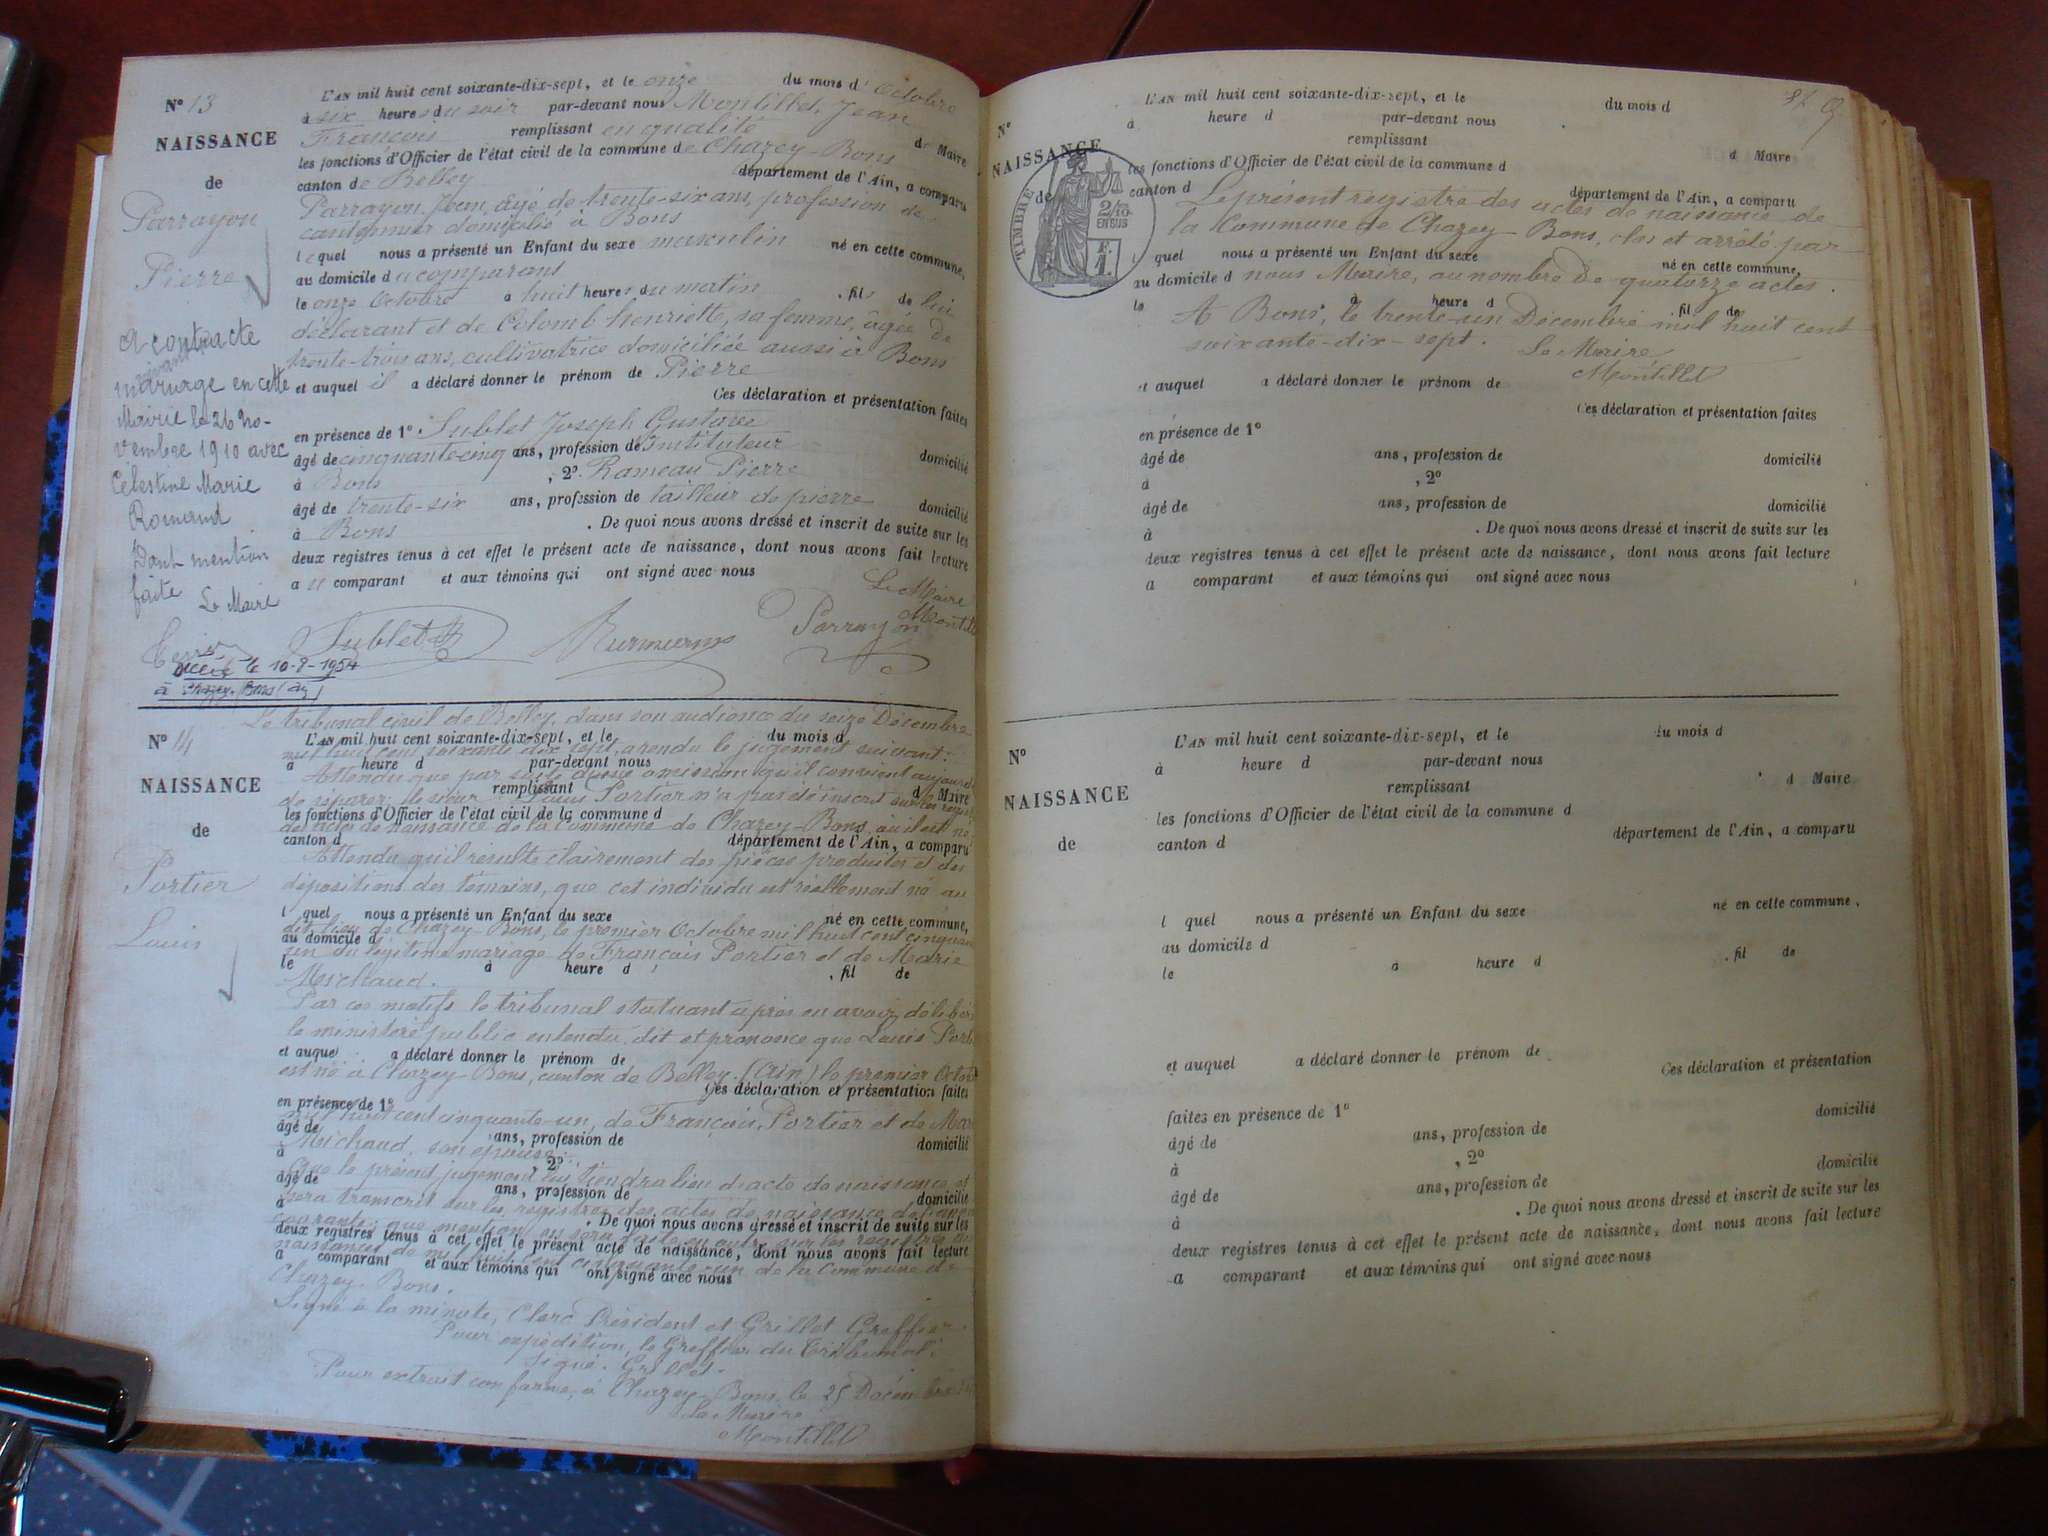 N° 13
NAISSANCE
de
Parrayon
Pierre
L'AN mil huit cent soixante-dix-sept, et le onze du mois d'Octobre
à six heures du soir par-devant nous Montillet, Jean
François remplissant en qualité de Maire
les fonctions d'Officier de l'état civil de la commune de Chazey-Bons
canton de Belley département de l'Ain, a comparu
Parrayon Jean, âgé de trente-six ans, profession de
cantonnier domicilié à Bons
lequel nous a présenté un Enfant du sexe masculin né en cette commune,
au domicile du comparant
le onze Octobre à huit heures du matin, fils de lui
déclarant et de Colomb henriette, sa femme, âgée de
trente-trois ans, cultivatrice domiciliée aussi à Bons
et auquel il a déclaré donner le prénom de Pierre
Ces déclaration et présentation faites
en présence de 1°. Sublet Joseph Gustave
âgé de cinquante-cinq ans, profession de Instituteur domicilié
à Bons, 2° Rameau Pierre
âgé de trente-six ans, profession de tailleur de pierre domicilié
à Bons. De quoi nous avons dressé et inscrit de suite sur les
deux registres tenus à cet effet le présent acte de naissance, dont nous avons fait lecture
a u comparant et aux témoins qui ont signé avec nous
Le Maire
Montillet
Sublet Parrayon
A contracte
mariage en cette
Mairie le 26 No-
vembre 1910 avec
Célestine Marie
Romand
Dont mention
faite
Le Maire
Décédé le 10-8-1954
à Chazey-Bons (Ain)
N° 14
NAISSANCE
de
Portier
Louis
Le tribunal civil de Belley, dans son audience du seize Décembre
L'AN mil huit cent soixante-dix-sept, et le du mois d
mil huit cent soixante dix sept, a rendu le jugement suivant:
à heure d par-devant nous
Attendu que par suite d'une omission qu'il convient aujourd
remplissant d Maire
de réparer, le sieur Louis Portier n'a pas été inscrit sur les regist
les fonctions d'Officier de l'état civil de la commune d
des actes de naissance de la Commune de Chazey-Bons, où il est né
canton d département de l'Ain, a comparu
Attendu qu'il résulte clairement des pièces produites et des
dépositions des témoins, que cet individu est réellement né au
l quel nous a présenté un Enfant du sexe né en cette commune,
dit lieu de Chazey-Bons, le premier Octobre mil huit cent cinquan
au domicile d
un du légitime mariage de François Portier et de Marie
le à heure d , fil de
Michaud.
Par ces motifs le tribunal statuant après en avoir délibér
le ministère public entendu, dit et prononce que Louis Port
et auquel a déclaré donner le prénom de
est né à Chazey-Bons, canton de Belley (Ain) le premier Octob
Ces déclaration et présentation faites
en présence de 1°
mil huit cent cinquante-un, de François Portier et de Mar
âgé de ans, profession de domicilié
Michaud, son épouse;
à , 2°
Que le présent jugement lui tiendra lieu d'acte de naissance et
âgé de ans, profession de domicilié
sera transcrit sur les registres des actes de naissance de l'année
à . De quoi nous avons dressé et inscrit de suite sur les
courante; que mention en sera faite en outre sur les registres de
deux registres tenus à cet effet le présent acte de naissance, dont nous avons fait lecture
naissances de mil huit cent cinquante-un de la Commune de
a comparant et aux témoins qui ont signé avec nous
Chazey-Bons.
Signé à la minute, Clerc Président et Grillet Greffier.
Pour expédition, le Greffier du Tribunal,
Signé. Grillet.
Pour extrait conforme, à Chazey-Bons, le 25 Décembre
Le Maire
Montillet
N°
NAISSANCE
de
TIMBRE
2/10
EN SUS
L'AN mil huit cent soixante-dix-sept, et le du mois d
à heure d par-devant nous
remplissant d Maire
les fonctions d'Officier de l'état civil de la commune d
canton d département de l'Ain, a comparu
Le présent registre des actes de naissance de
la Commune de Chazey-Bons, clos et arrêté par
l quel nous a présenté un Enfant du sexe né en cette commune,
au domicile d nous Maire, au nombre de quatorze actes.
le à heure d , fil de
A Bons, le trente-un Décembre mil huit cent
soixante-dix-sept.
Le Maire
Montillet
et auquel a déclaré donner le prénom de
Ces déclaration et présentation faites
en présence de 1°
âgé de ans, profession de domicilié
à , 2°
âgé de ans, profession de domicilié
à . De quoi nous avons dressé et inscrit de suite sur les
deux registres tenus à cet effet le présent acte de naissance, dont nous avons fait lecture
a comparant et aux témoins qui ont signé avec nous
N°
NAISSANCE
de
L'AN mil huit cent soixante-dix-sept, et le du mois d
à heure d par-devant nous
remplissant d Maire
les fonctions d'Officier de l'état civil de la commune d
canton d département de l'Ain, a comparu
l quel nous a présenté un Enfant du sexe né en cette commune,
au domicile d
le à heure d , fil de
et auquel a déclaré donner le prénom de
Ces déclaration et présentation
faites en présence de 1°
âgé de ans, profession de domicilié
à , 2°
âgé de ans, profession de domicilié
à . De quoi nous avons dressé et inscrit de suite sur les
deux registres tenus à cet effet le présent acte de naissance, dont nous avons fait lecture
a comparant et aux témoins qui ont signé avec nous